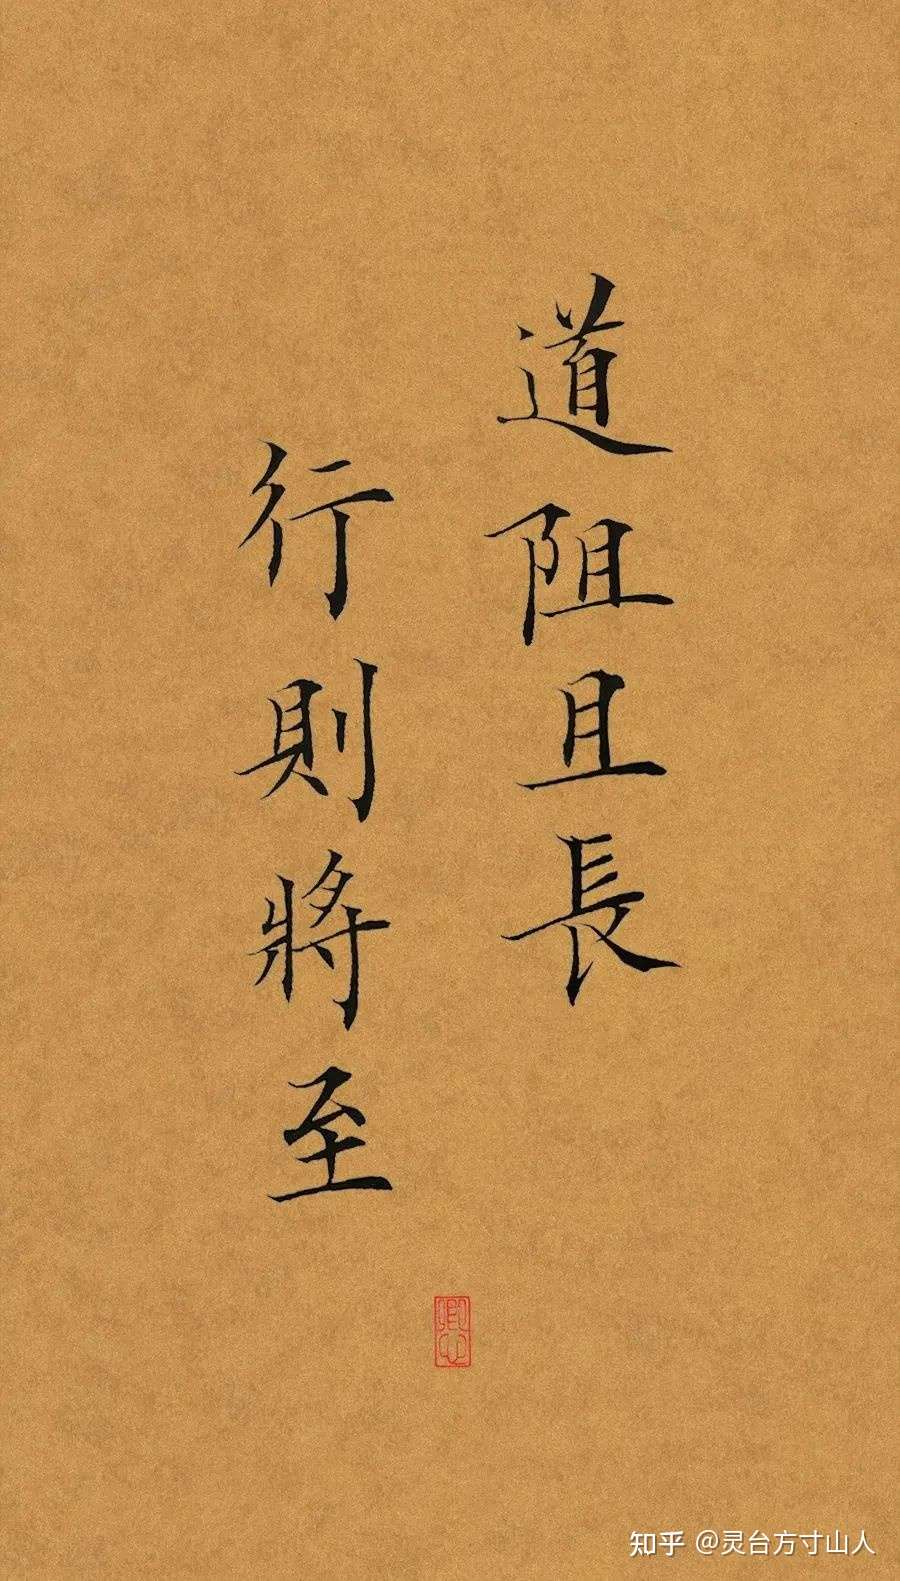 道阻且長
行則將至
知乎 @灵台方寸山人